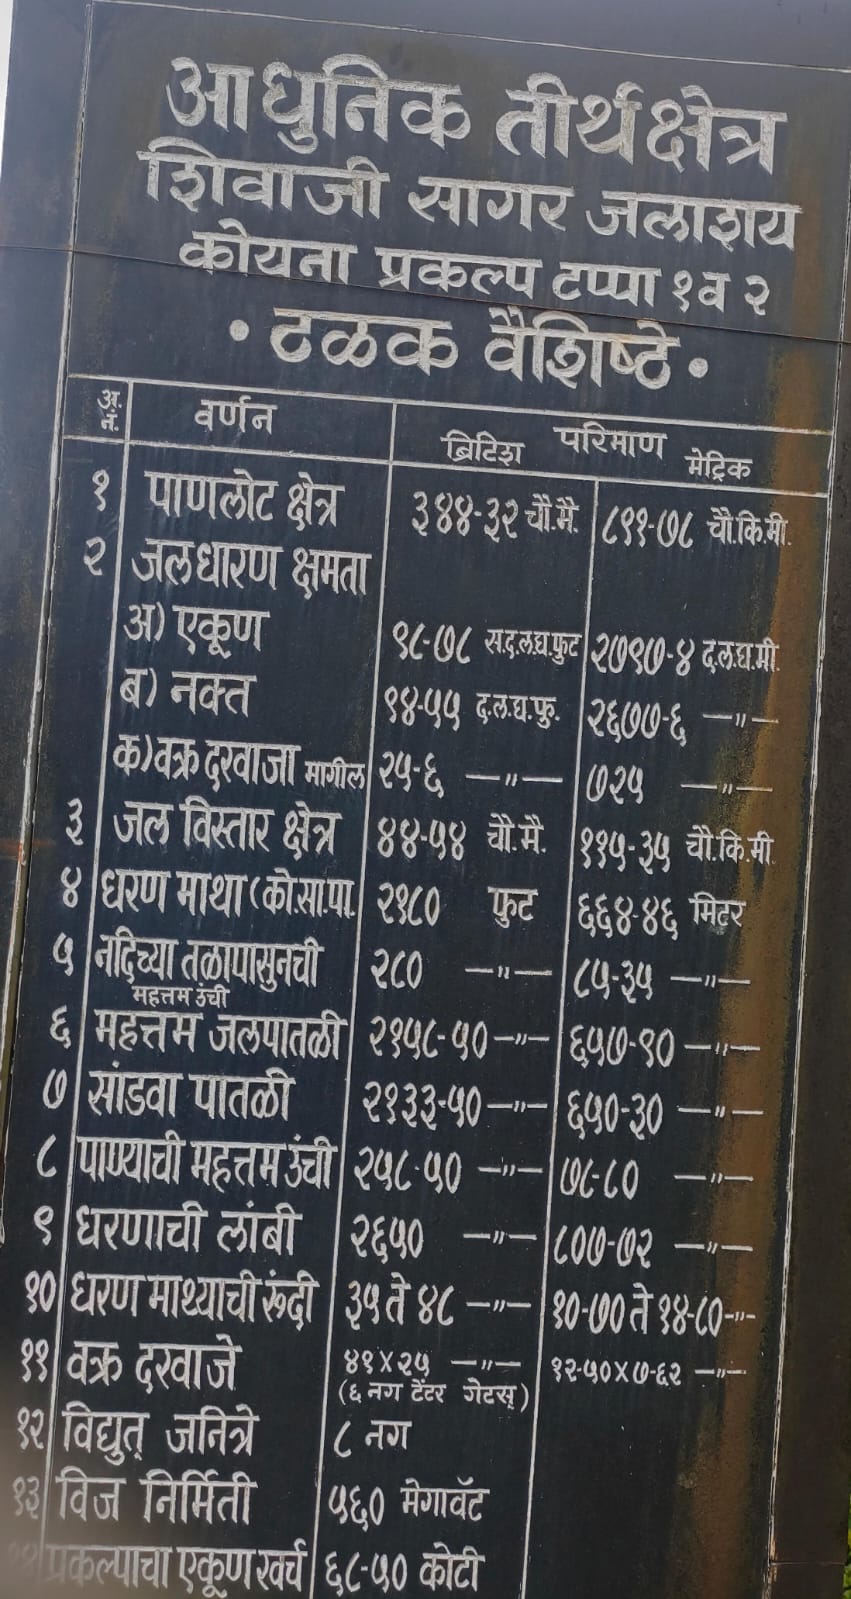 आधुनिक तीर्थक्षेत्र
शिवाजी सागर जलाशय
कोयना प्रकल्प टप्पा १ व २
• टळक वैशिष्ठे •
अ. नं. वर्णन परिमाण
ब्रिटिश मेट्रिक
१ पाणलोट क्षेत्र ३४४-३२ चौ.मै. ८९१-७८ चौ.कि.मी.
२ जलधारण क्षमता
अ) एकूण ९८-७८ स.द.ल.घ.फुट २७९७-४ द.ल.घ.मी.
ब) नक्त ९४-५५ द.ल.घ.फु. २६७७-६ —"—
क) वक्र दरवाजा मागील २५-६ —"— ७२५ —"—
३ जल विस्तार क्षेत्र ४४-५४ चौ.मै. ११५-३५ चौ.कि.मी.
४ धरण माथा (को.सा.पा. २१८० फुट ६६४-४६ मिटर
५ नदिच्या तळापासुनची २८० —"— ८५-३५ —"—
महत्तम उंची
६ महत्तम जलपातळी २१५८-५० —"— ६५७-९० —"—
७ सांडवा पातळी २१३३-५० —"— ६५०-३० —"—
८ पाण्याची महत्तम उंची २५८-५० —"— ७८-८० —"—
९ धरणाची लांबी २६५० —"— ८०७-७२ —"—
१० धरण माथ्याची रूंदी ३५ ते ४८ —"— १०-७० ते १४-८० -"-
११ वक्र दरवाजे ४१ x २५ —"— १२-५० x ७-६२ —"—
(६ नग टेंटर गेटस्)
१२ विद्युत् जनित्रे ८ नग
१३ विज निर्मिती ५६० मेगावॅट
१४ प्रकल्पाचा एकूण खर्च ६८-५० कोटी